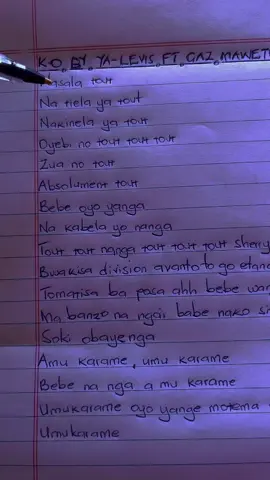 K.O. BY YA-LEVIS FT GAZ MAWETE
Basala tout
Na tiela ya tout
Nakinela ya tout
Oyebi no tout tout tout
Zua no tout
Absolument tout
Bebe oyo yanga
Na kabela yo nanga
Tout tout nanga tout tout tout
Bwakisa division avanto to go
Tomatisa ba posa ahh bebe
Ma banzo na ngai babe nako
Soki obayenga
Amu karame, umu karame
Bebe na nga a mu karame
Umukarame oyo yange motema
Umukarame